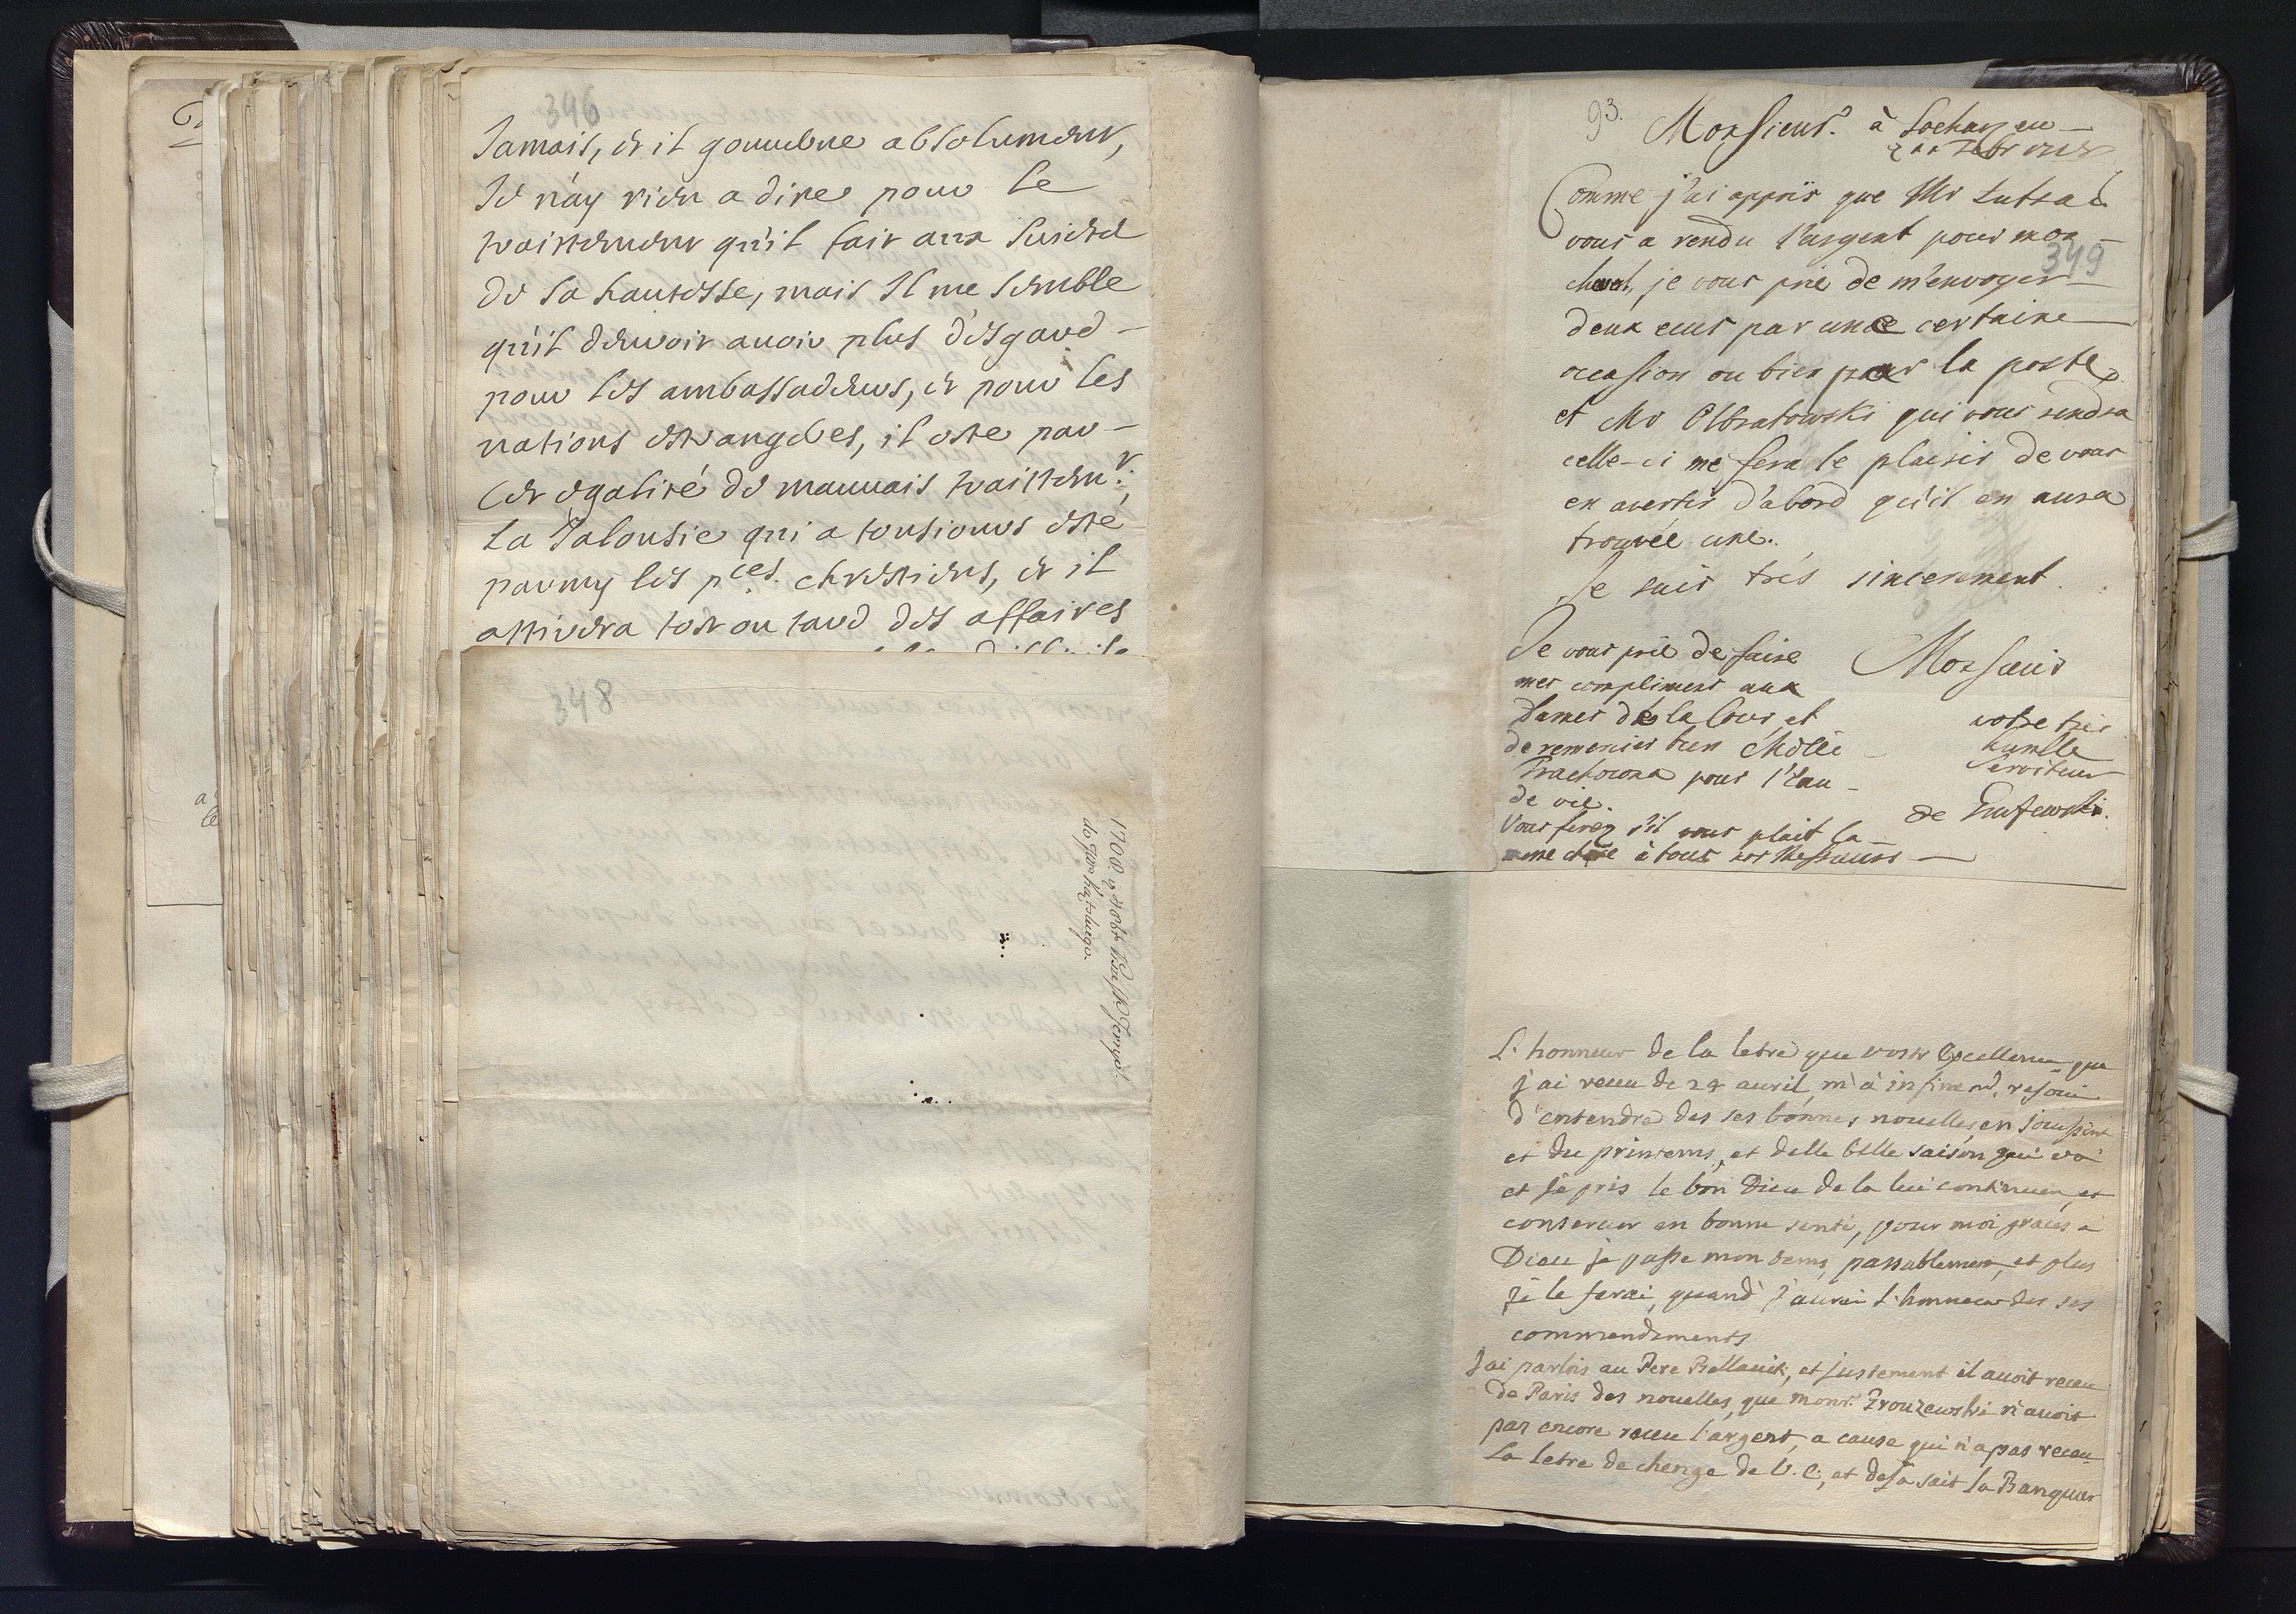 346
Jamais, et il gouuerne absolument,
Je n'ay rien a dire pour le
traittement qu'il fait aux suiets
de sa hautesse, mais Il me semble
qu'il deuroit auoir plus d'esgard
pour les ambassadeurs, et pour les
nations estrangeres, il oste par
Cet egalité de mauuais traittemt.,
La Jalousie qui a tousiours esté
parmy les pces. chrestiens, et il
attirera tost ou tard des affaires
348
1700
93.
Monsieur. à
Comme j'ai appris que Mr
vous a rendu l'argent pour mon
349
cheval, je vous prie de m'envoyer
deux ecus par une certaine
occasion ou bien par la poste
et Mr Olbratowski qui vous rendra
celle-ci me fera le plaisir de vous
en avertir d'abord qu'il en aura
trouvée une.
Je suis trés sincerement
Monsieur
votre très
humble
serviteur
de
Je vous prie de faire
mes complimens aux
Dames de la Cour, et
de remercier bien
pour l'eau
de vie.
Vous ferez s'il vous plait la
meme chose à tous nos Messieurs
L'honneur de la letre que vostr Excellence que
j'ai receu de 24 auril, m'à infinemt. resoui
d'entendre des ses bonnes nouelles, en
et du printems, et delle belle saison qui
et je pris le bon Dieu de la lui continuer, et
conseruer en bonne senté, pour moi graces a
Dieu je passe mon tems, passablement, et plus
je le ferai, quand j'aurai l'honneur des ses
commendements
J'ai parlois au Pere, et justement il auoit receu
de Paris des nouelles, que monsr. Zrouzewski n'auoit
pas encore receu l'argent, a cause qui n'a pas receu
La letre de chenge de V. E., et desà sait la Banquer